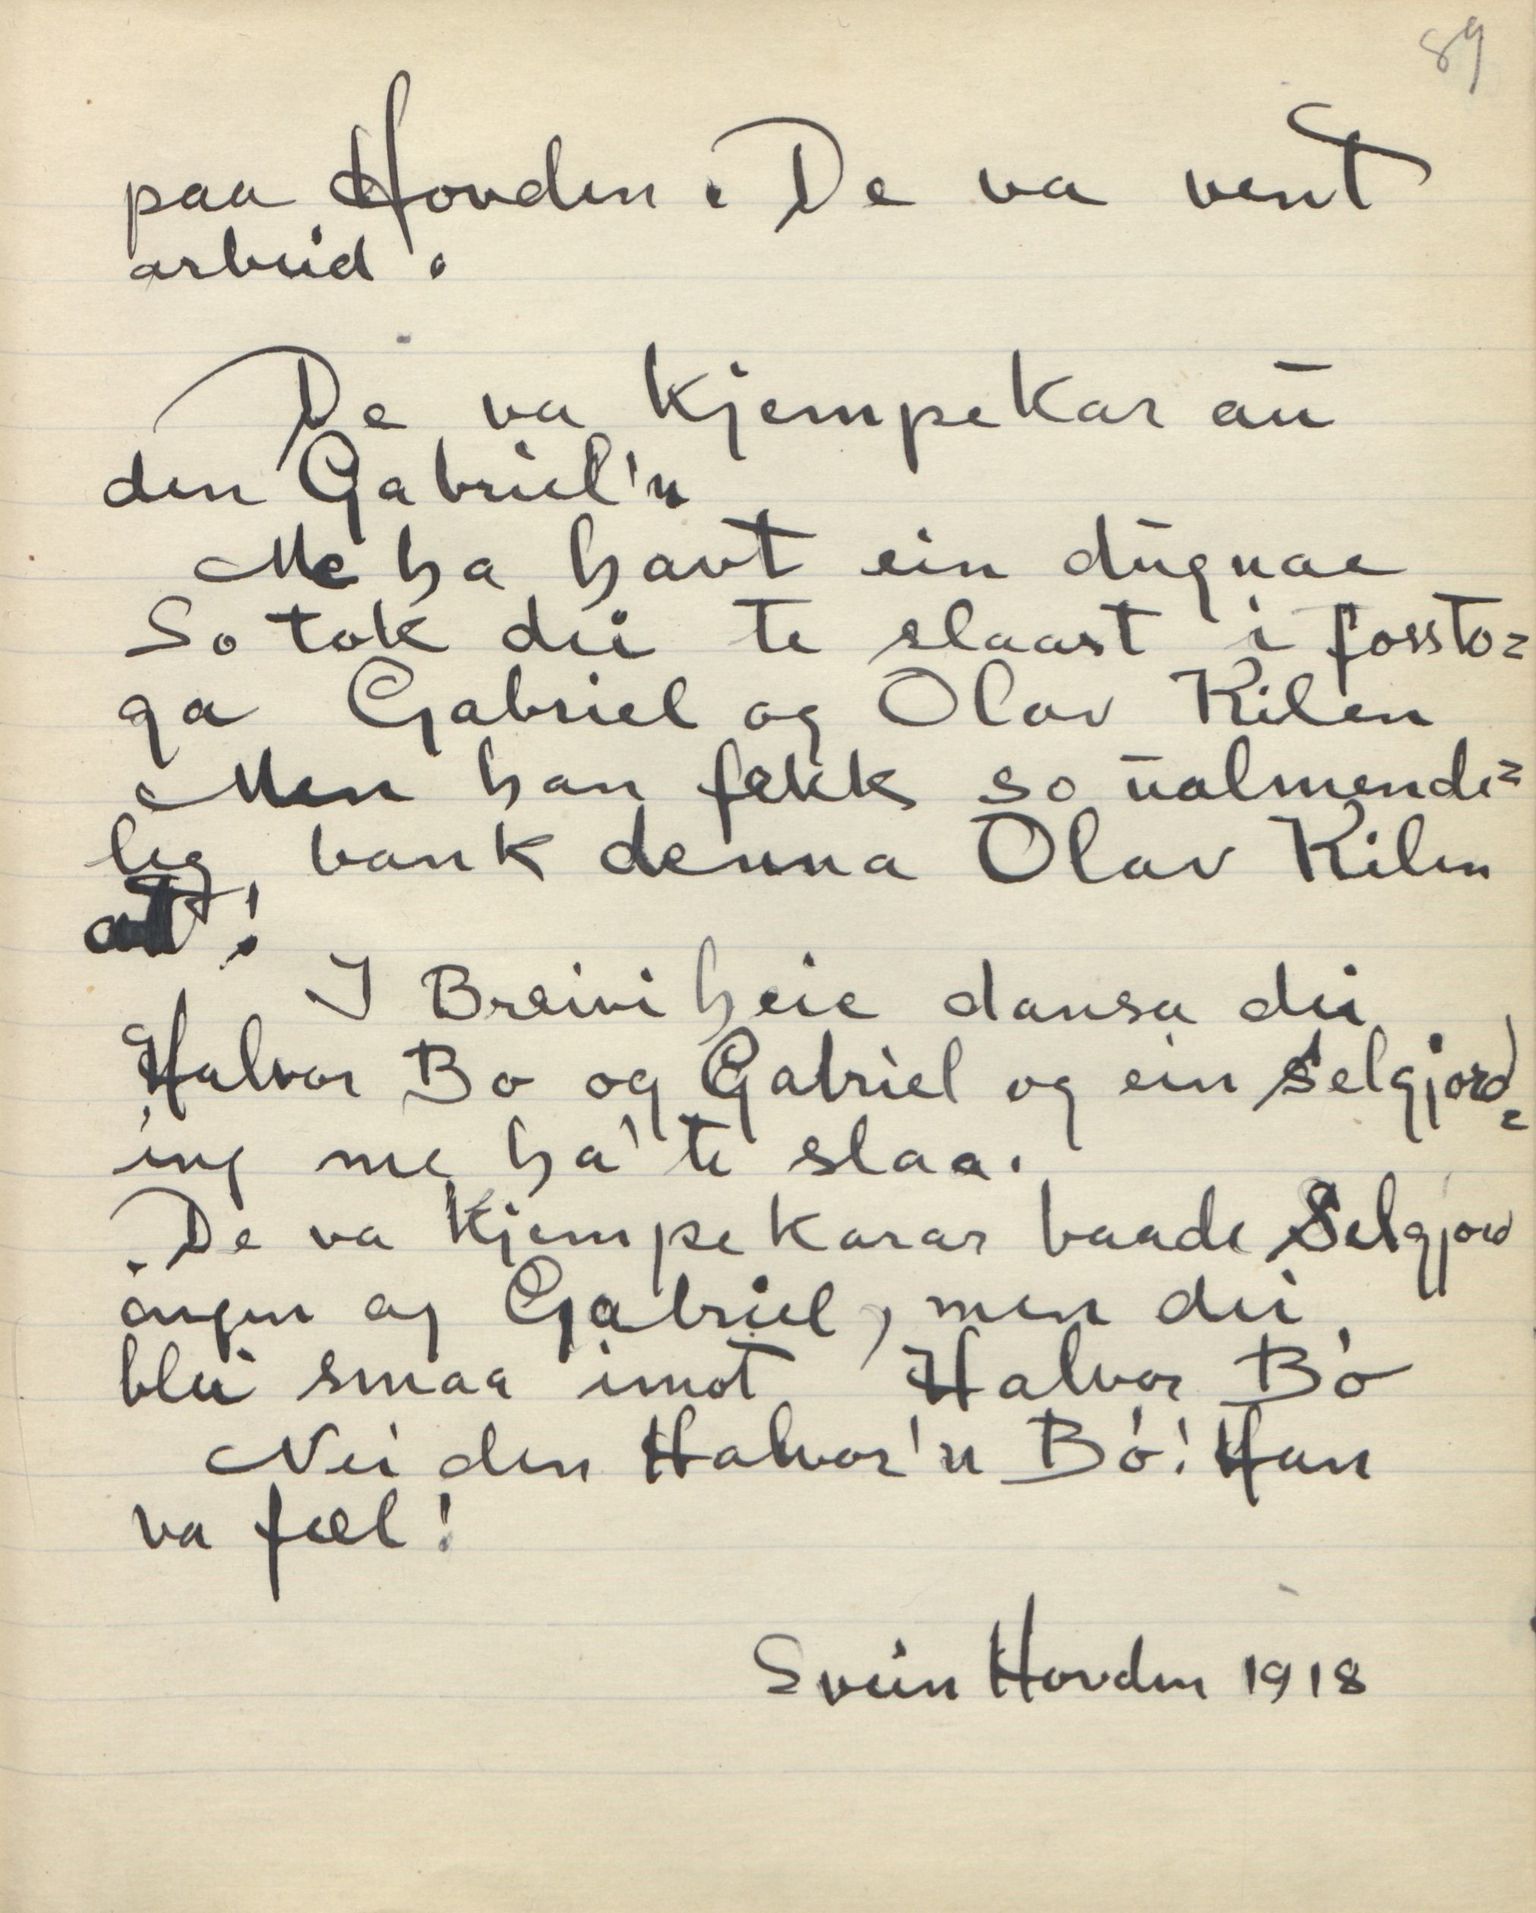 89
paa Hovden. De va vent
arbeid.
De va kjempekar au
den Gabriel'n
Me ha havt ein dugnae
So tok dei te slaast i fossto=
ga Gabriel og Olav Kilen
Men han fekk so ualmende=
leg bank denna Olav Kilen
at!
I Breiviheie dansa dei
Halvor Bo og Gabriel og ein Selgjord=
ing me ha' te slaa.
De va kjempekarar baade Selgjord
ingen og Gabriel, men dei
blei smaa imot Halvor Bó
Nei den Halvor'n Bó! Han
va fæl!
Svein Hovden 1918